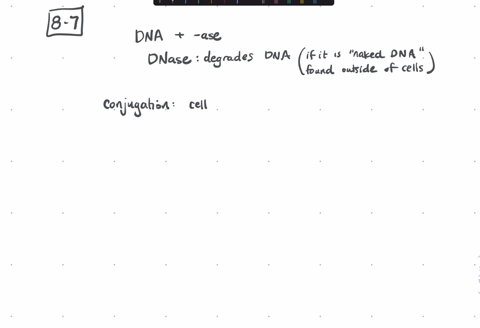 8-7
DNA + -ase
DNase: degrades DNA (if it is "naked DNA"
found outside of cells)
Conjugation: cell